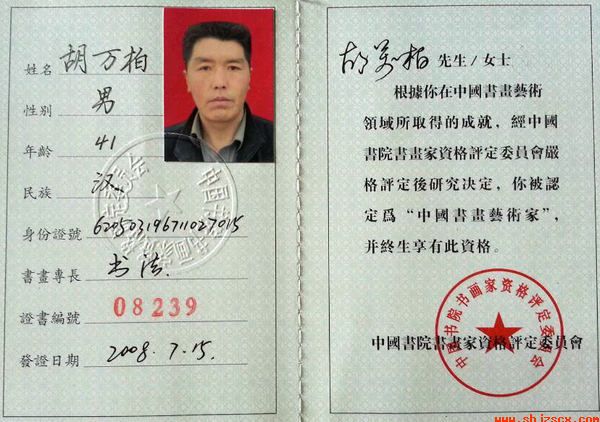 姓名 胡万柏
性别 男
年齡 41
民族 汉
身份證號 620503196711027015
書畫專長 书法.
證書編號 08239
發證日期 2008.7.15.
胡万柏 先生/女士
根據你在中國書畫藝術
領域所取得的成就，經中國
書院書畫家資格評定委員會嚴
格評定後研究決定，你被認
定爲“中國書畫藝術家”，
并終生享有此資格。
中國书院书画家资格评定委员会
中國書院書畫家資格評定委員會
www.shjzscx.com